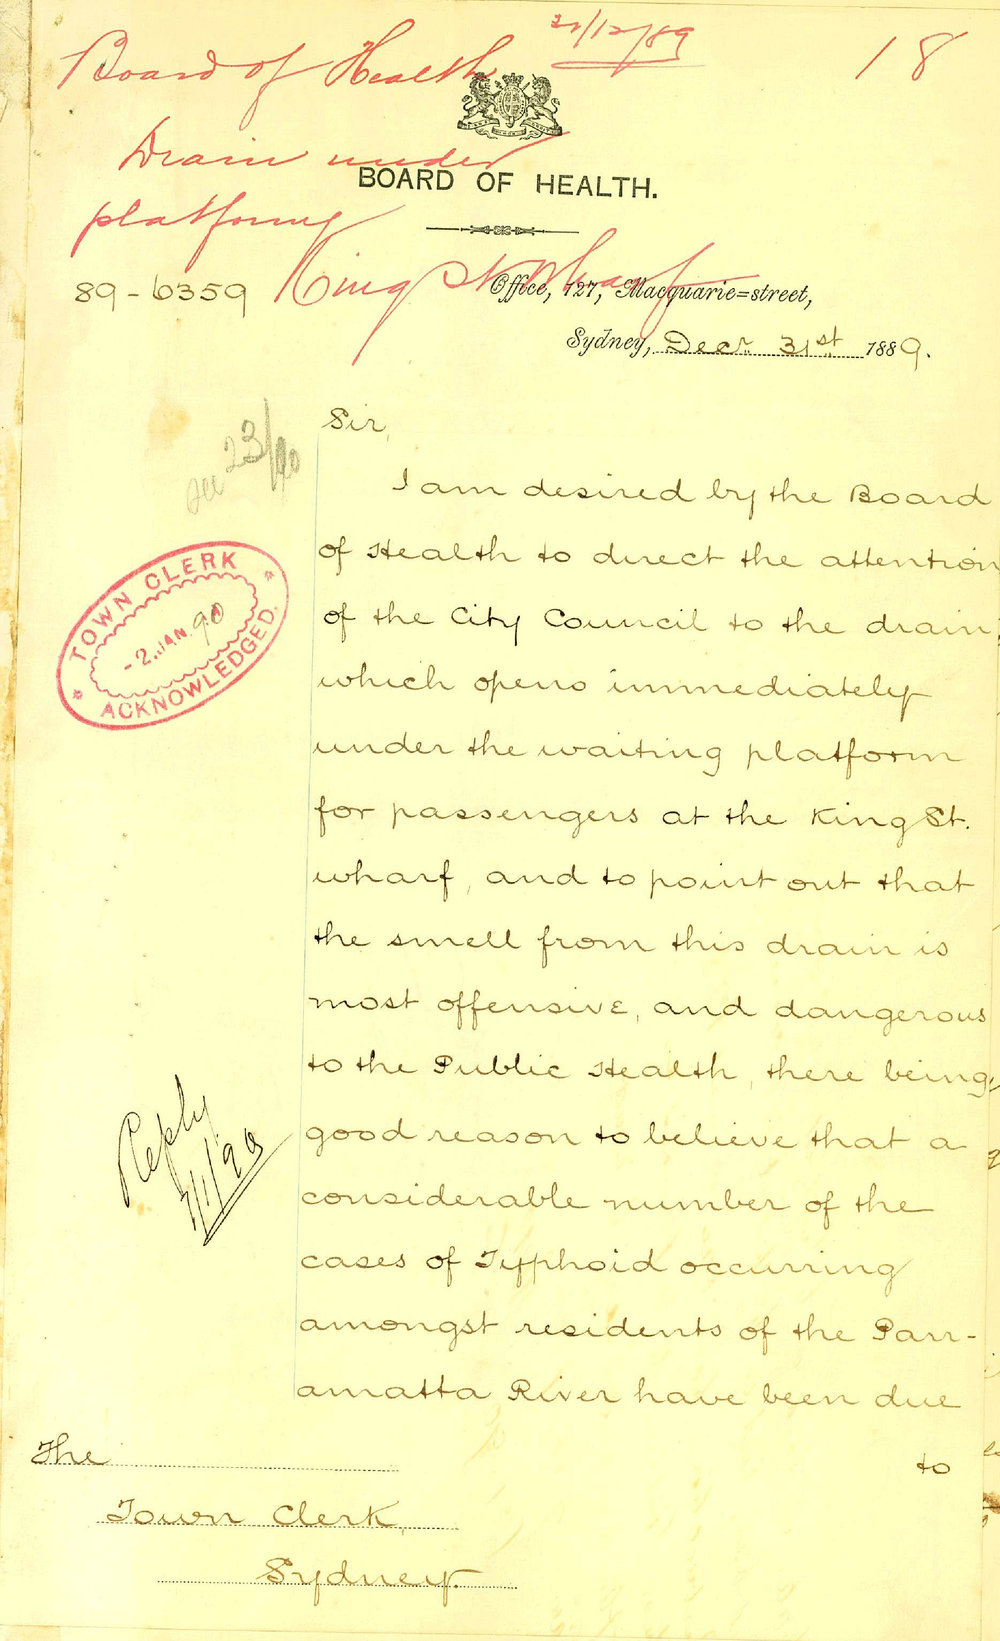 Board of Health 31/12/89
18
Drain under
platform
King St Wharf
BOARD OF HEALTH.
89-6359
Office, 127, Macquarie=street,
Sydney, Decr. 31st 1889.
23/90
Sir,
I am desired by the Board
of Health to direct the attention
of the City Council to the drain,
which opens immediately
under the waiting platform
for passengers at the King St.
wharf, and to point out that
the smell from this drain is
most offensive, and dangerous
to the Public Health, there being
good reason to believe that a
considerable number of the
cases of Typhoid occurring
amongst residents of the Parr-
amatta River have been due
to
TOWN CLERK
-2. JAN. 90
ACKNOWLEDGED.
Reply
7/1/90
The
Town Clerk,
Sydney.